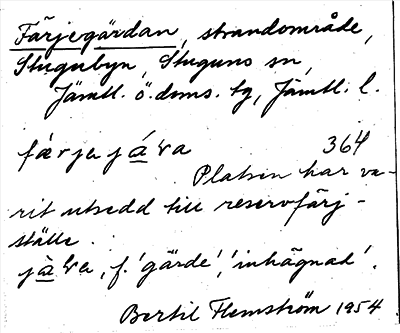 Färjegärdan, strandområde,
Stugubyn, Stuguns sn,
Jämtl. ö. doms. tg, Jämtl. l.
färja jᴀ̀va 364
Platsen har va-
rit utsedd till reservfärj-
ställe.
jà̱va, f. 'gärde', 'inhägnad'.
Bertil Flemström 1954